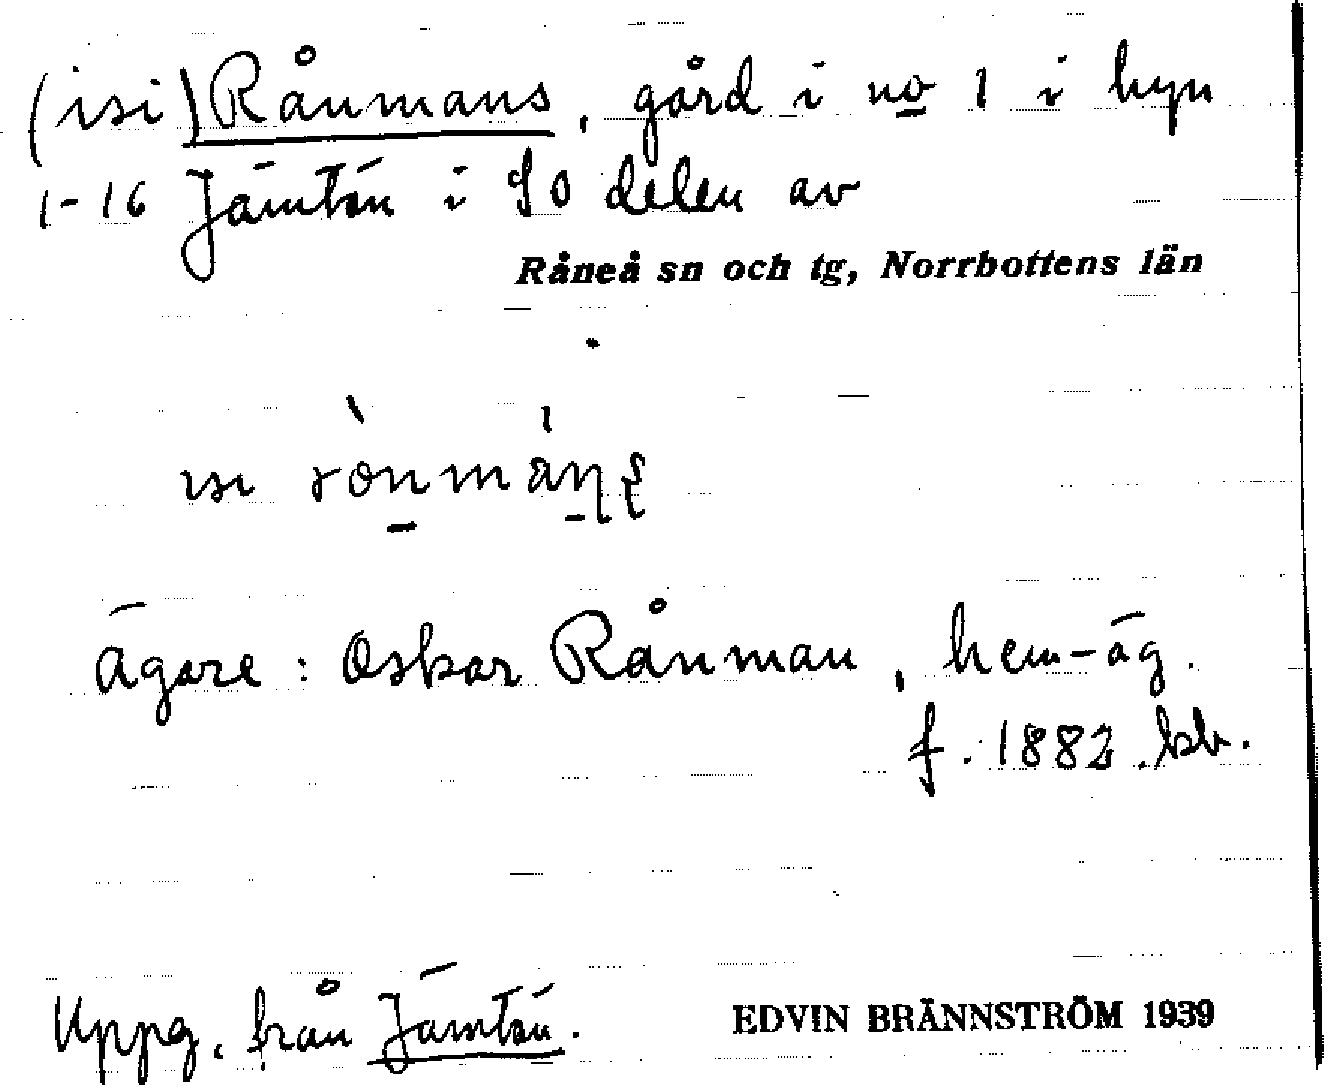 (isi) Rånmans, gård i no 1 i byn
1-16 Jämtön i SO delen av
Råneå sn och tg, Norrbottens län
ısı
ägare: Oskar Rånman, hem-äg.
f. 1882 kb.
Uppg. från Jämtön.
EDVIN BRÄNNSTRÖM 1939